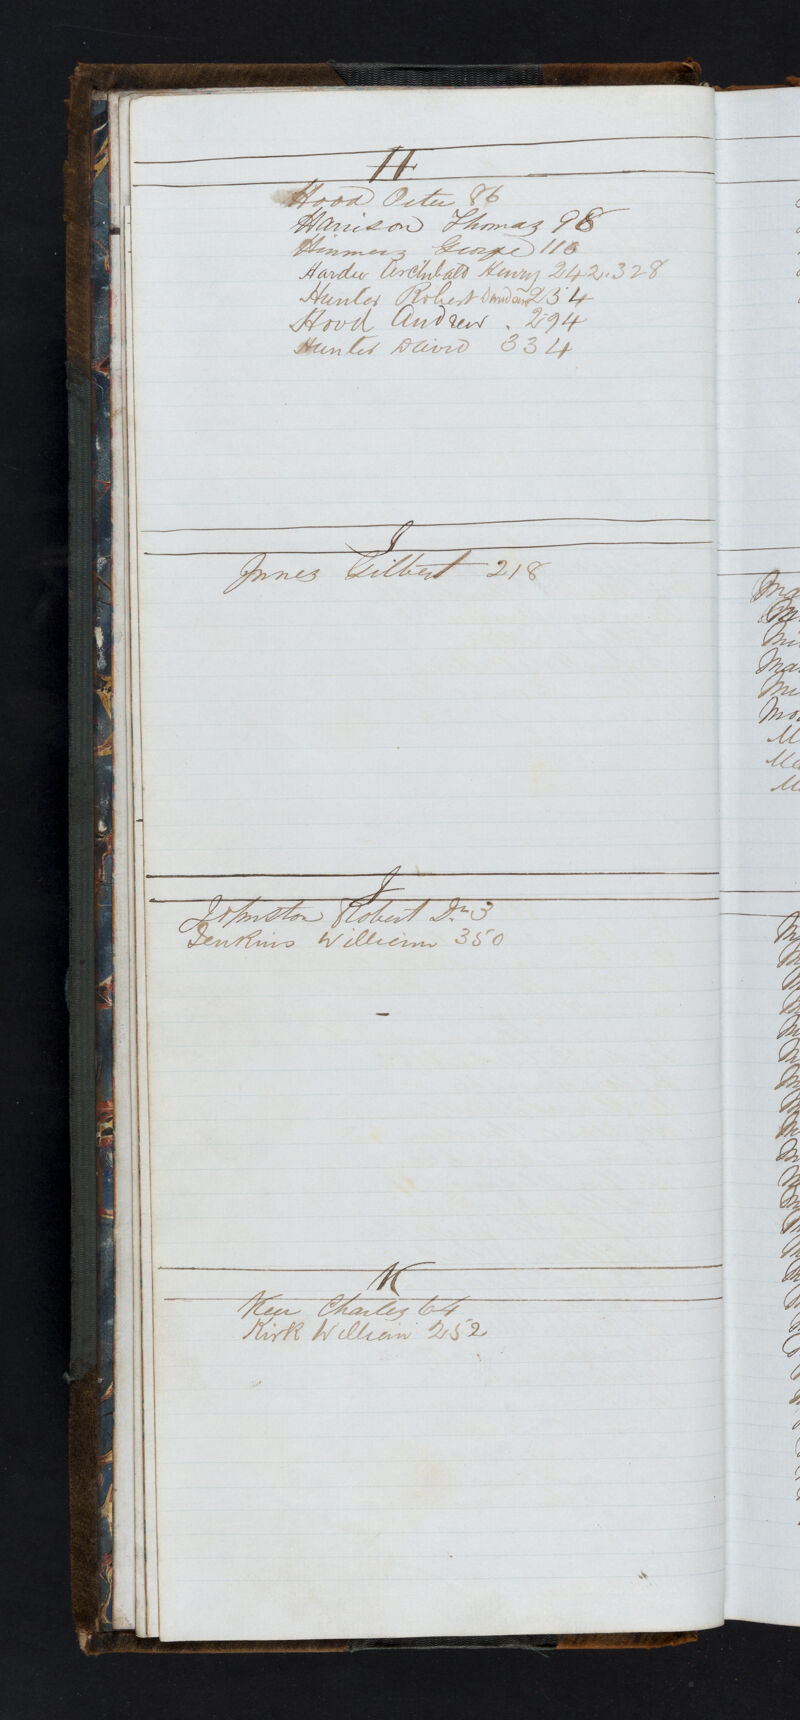 H
Hood Peter 86
Harrison Thomas 98
Hinmers George 110
Hardie Archibald Henry 242.328
Hunter Robert 234
Hood Andrew . 294
Hunter David 334
I
Innes Gilbert 218
J
Johnston Robert Dr 3
Jenkins William 350
K
Kerr Charles 64
Kirk William 252